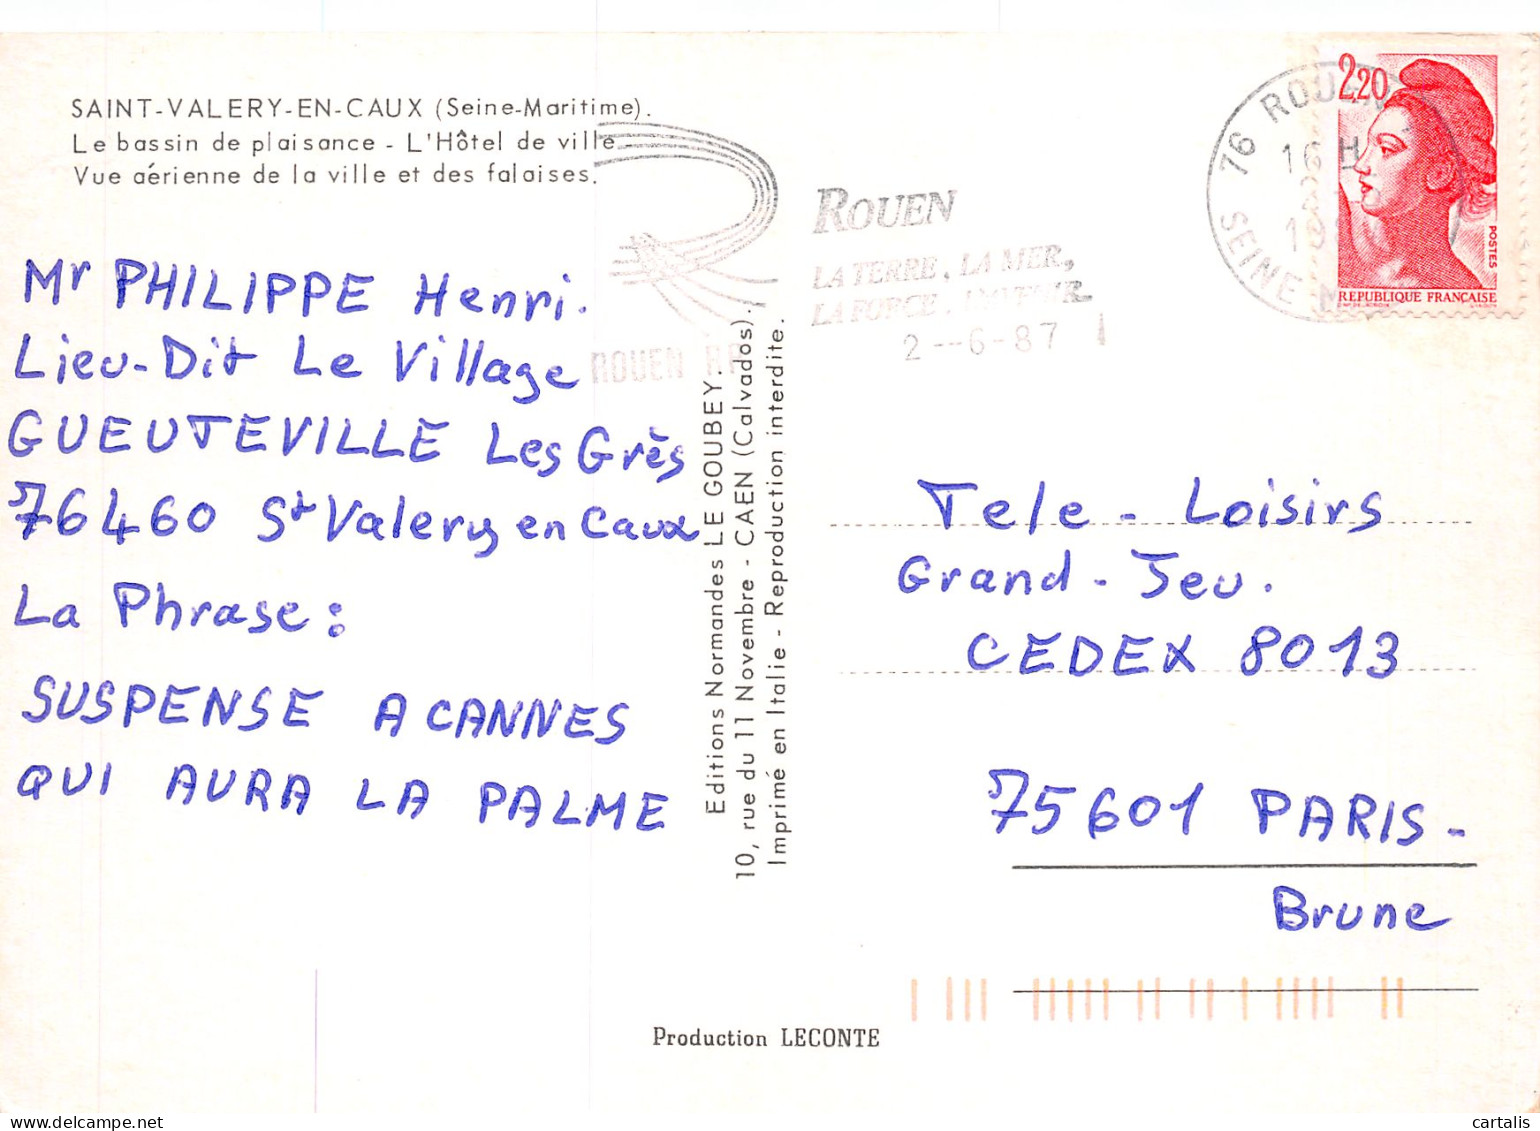 SAINT-VALERY-EN-CAUX (Seine-Maritime).
Le bassin de plaisance - L'Hôtel de ville -
Vue aérienne de la ville et des falaises.
Mr PHILIPPE Henri.
Lieu-Dit Le Village
GUEUTEVILLE Les Grès
76460 St Valery en Caux
La Phrase:
SUSPENSE A CANNES
QUI AURA LA PALME
Editions Normandes LE GOUBEY.
10, rue du 11 Novembre - CAEN (Calvados).
Imprimé en Italie - Reproduction interdite.
ROUEN
LA TERRE, LA MER,
LA FORCE, L'AVENIR
2--6-87
ROUEN RP
76 ROUEN
16H
SEINE M
2,20
POSTES
REPUBLIQUE FRANÇAISE
Tele-Loisirs
Grand-Jeu.
CEDEX 8013
75601 PARIS-
Brune
Production LECONTE
cartalis